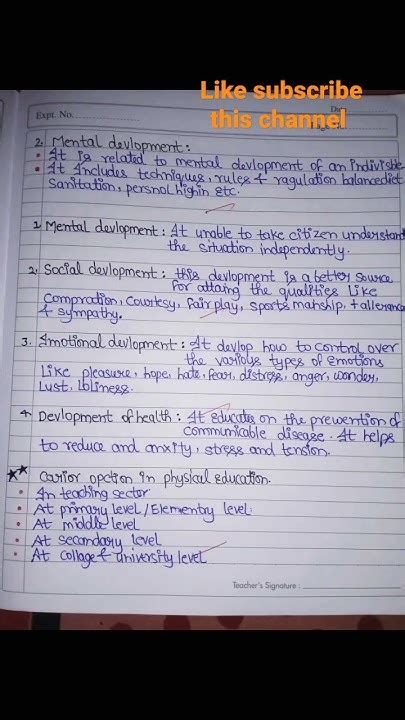 Like subscribe
this channel
Expt. No.
2. Mental devlopment:
• At is related to mental devlopment of an indivisbe
• At Includes techniques, rules & ragulation balancedict
Sanitation, persnol higin etc.
1. Mental devlopment: At unable to take citizen understand
the situation independently.
2. Social devlopment: this devlopment is a better source
for attaing the qualities like
Compration, Courtesy, fair play, sports manship, tallerance
& sympathy.
3. Amotional devlopment: At devlop how to control over
the various types of emotions
like pleasure, hope, hate, fear, distress, anger, wonder,
Lust, lbliness.
4 Devlopment of health: At educates on the prevention of
communicable disease. At helps
to reduce and anxity, stress and tension.
** Carrior opction in physical education.
• An teaching sector
• At primary level / Elementry level
• At middle level
• At secondary level
• At collage & university level
Teacher's Signature :